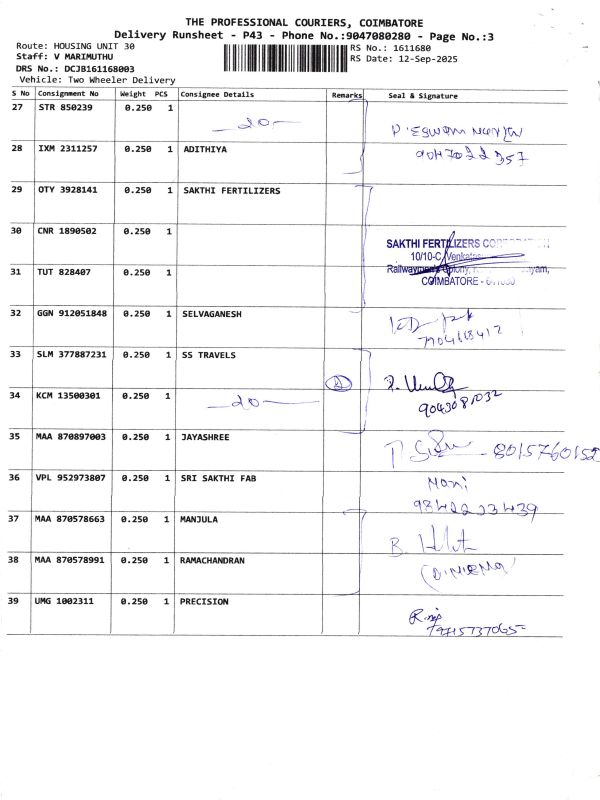 THE PROFESSIONAL COURIERS, COIMBATORE
Delivery Runsheet - P43 - Phone No.:9047080280 - Page No.:3
Route: HOUSING UNIT 30
Staff: V MARIMUTHU
DRS No.: DCJB161168003
Vehicle: Two Wheeler Delivery
RS No.: 1611680
RS Date: 12-Sep-2025
S No Consignment No Weight PCS Consignee Details Remarks Seal & Signature
27 STR 850239 0.250 1 -do-
28 IXM 2311257 0.250 1 ADITHIYA 9047022357
29 OTY 3928141 0.250 1 SAKTHI FERTILIZERS
30 CNR 1890502 0.250 1
SAKTHI FERTILIZERS
10/10-C, Venkat
31 TUT 828407 0.250 1
COIMBATORE - 641030
32 GGN 912051848 0.250 1 SELVAGANESH
7904668412
33 SLM 377887231 0.250 1 SS TRAVELS
34 KCM 13500301 0.250 1 -do-
9043081032
35 MAA 870897003 0.250 1 JAYASHREE 8015760152
36 VPL 952973807 0.250 1 SRI SAKTHI FAB Mani
9842223439
37 MAA 870578663 0.250 1 MANJULA
38 MAA 870578991 0.250 1 RAMACHANDRAN
39 UMG 1002311 0.250 1 PRECISION